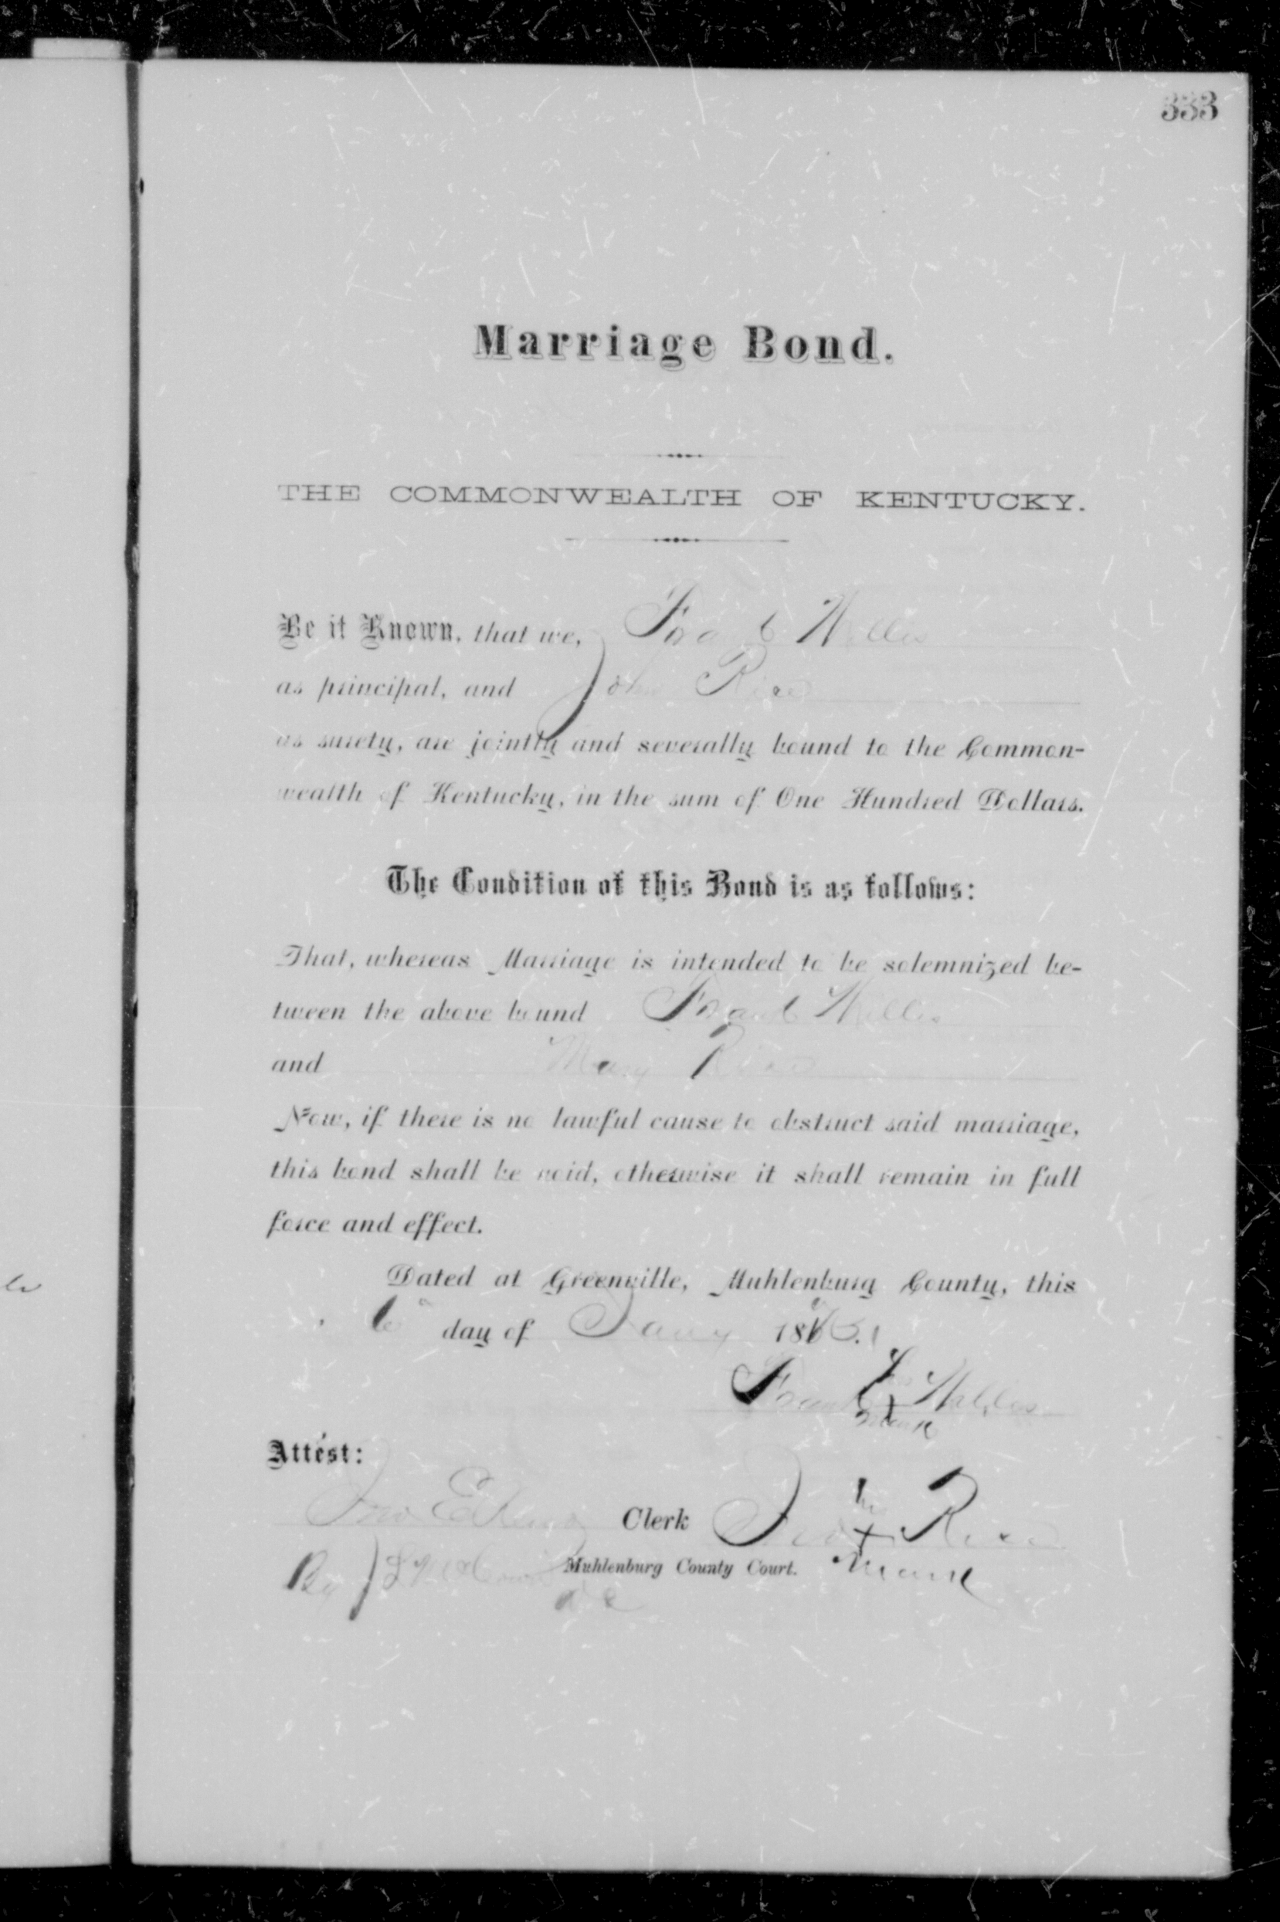 333
Marriage Bond.
THE COMMONWEALTH OF KENTUCKY.
Be it Known, that we, Frank Willis
as principal, and John Rice
as surety, are jointly and severally bound to the Common-
wealth of Kentucky, in the sum of One Hundred Dollars.
The Condition of this Bond is as follows:
That, whereas Marriage is intended to be solemnized be-
tween the above bound Frank Willis
and Mary Rice
Now, if there is no lawful cause to obstruct said marriage,
this bond shall be void, otherwise it shall remain in full
force and effect.
Dated at Greenville, Muhlenburg County, this
6" day of Jany 187
Frank his x mark Willis
Attest:
Jno Clerk Jno his x mark Rice
By Muhlenburg County Court.
DC